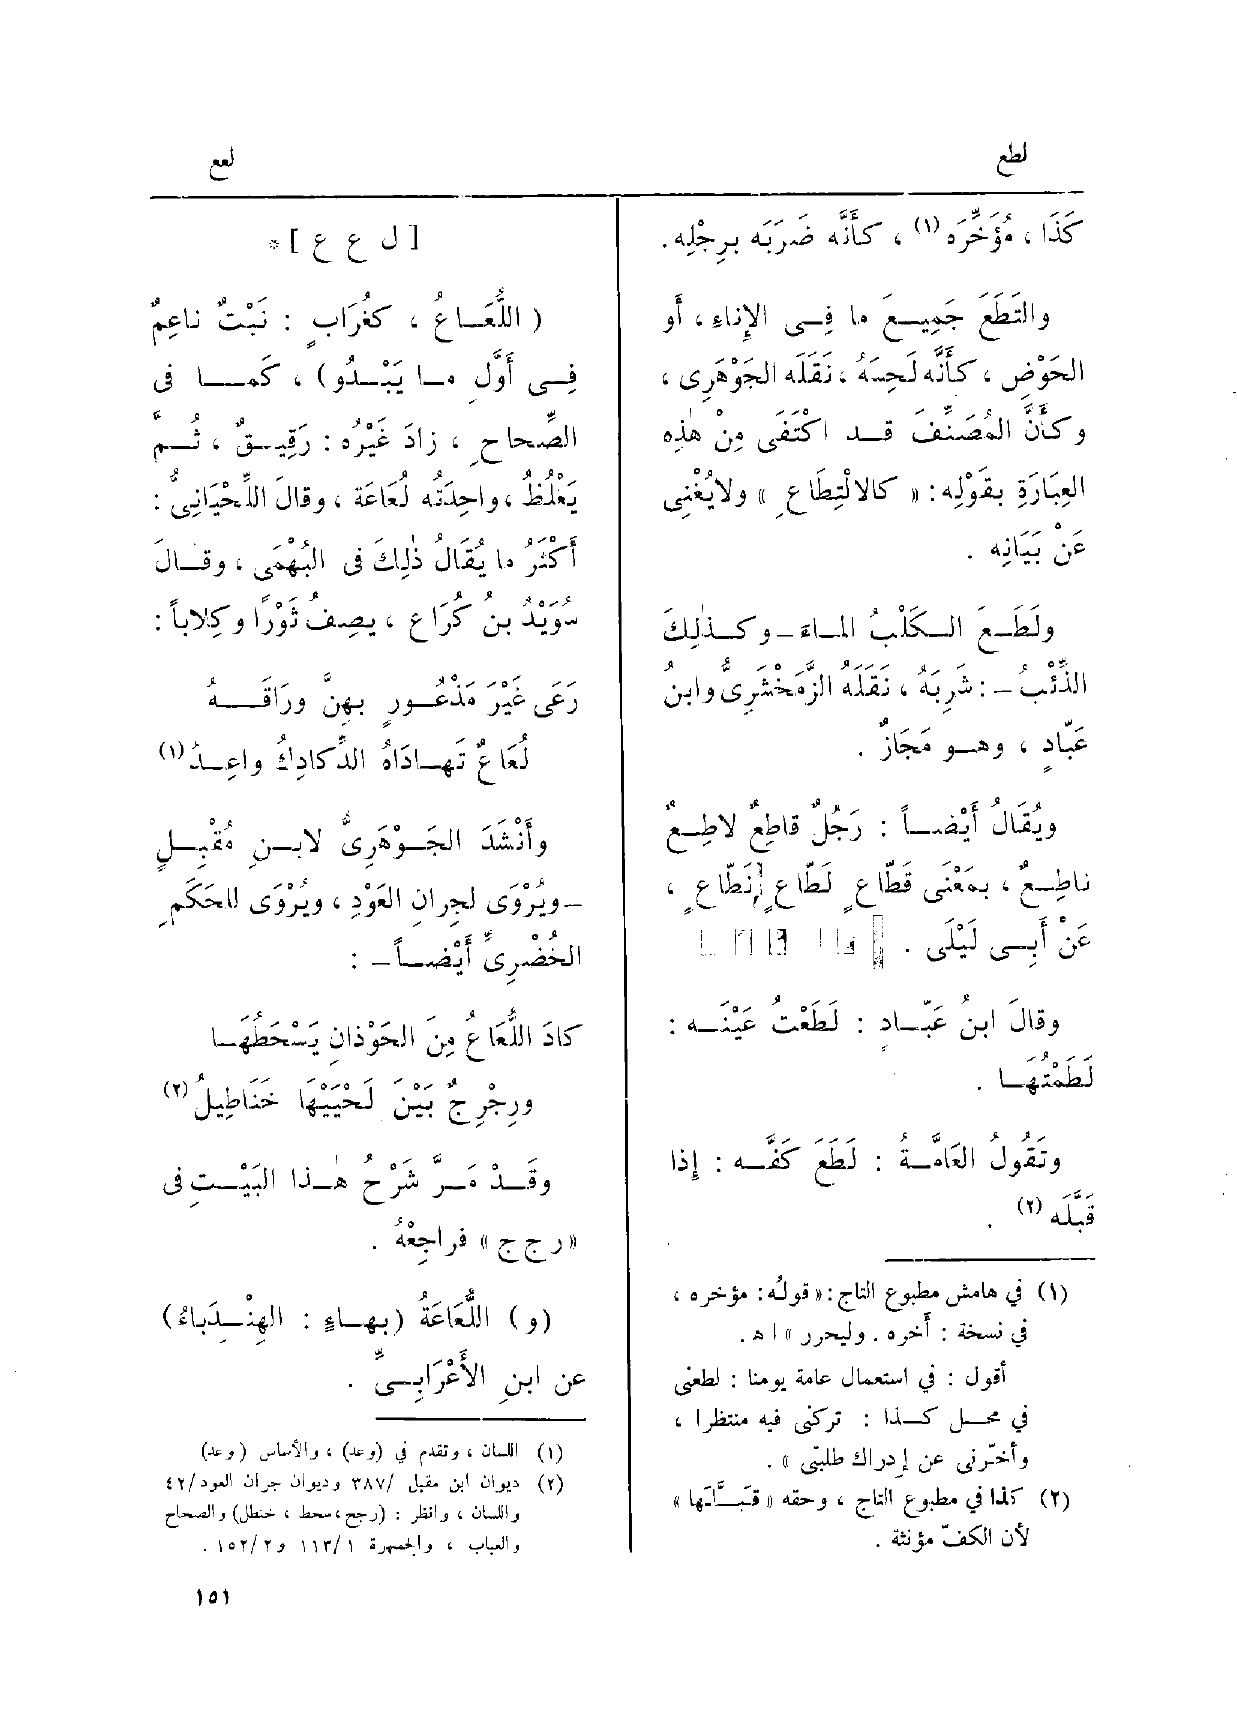 لطع
لعع
كَذَا ، مُؤَخِّرَه (١) ، كأَنَّه ضَرَبَه برِجْلِه.
والْتَطَعَ جَمِيـعَ ما فِـى الإِناءِ ، أَو
الحَوْضِ ، كأَنَّه لَحِسَهُ ، نَقَلَه الجَوْهَرِى ،
وكأَنَّ المُصَنِّفَ قـد اكْتَفَى مِنْ هٰذِه
العِبَارَةِ بقَوْلِه: « كالالْتِطَاعِ » ولايُغْنِى
عَنْ بَيَانِه .
ولَطَـعَ الـكَلْبُ المـاءَ ـ وكـذٰلِكَ
الذِّئْبُ ـ : شَرِبَهُ ، نَقَلَهُ الزَّمَخْشَرِىُّ وابنُ
عَبّادٍ ، وهـو مَجَازٌ .
ويُقَالُ أَيْضـاً : رَجُلٌ قاطِعٌ لاطِـعٌ
ناطِـعٌ ، بمَعْنَى قَطّاعٍ لَطّاعٍ نَطّاعٍ ،
عَنْ أَبِـى لَيْلَى .
وقالَ ابنُ عَبّـادٍ : لَطَعْتُ عَيْنَـه :
لَطَمْتُهـا .
وتَقُولُ العَامَّـةُ : لَطَعَ كَفَّـه : إِذا
قَبَّلَه (٢) .
(١) في هامش مطبوع التاج: « قولُه: مؤخره ،
في نسخة : أُخره . وليحرر » ا ه .
أقول : في استعمال عامة يومنا : لطعنى
في محـل كـذا : تركنى فيه منتظرا ،
وأخّرنى عن إدراك طلبتى » .
(٢) كذا في مطبوع التاج ، وحقه « قبَّـلَها »
لأن الكفّ مؤنثة .
[ ل ع ع ] *
( اللُّعَـاعُ ، كغُرَابٍ : نَبْتٌ ناعِمٌ
فِـى أَوَّلِ مـا يَبْـدُو) ، كَمـا فى
الصِّحاحِ ، زادَ غَيْرُه : رَقِيـقٌ ، ثُـمَّ
يَغْلُظُ ، واحِدَتُه لُعَاعَة ، وقالَ اللِّحْيَانِىُّ :
أَكْثَرُ ما يُقَالُ ذٰلِكَ فى البُهْمَى ، وقـالَ
سُوَيْدُ بنُ كُرَاعٍ ، يصِفُ ثَوْرًا وكِلاباً :
رَعَى غَيْرَ مَذْعُـورٍ بهِنَّ ورَاقَـهُ
لُعَاعٌ تَهـادَاهُ الدَّكادِكُ واعِـدُ (١)
وأَنْشَدَ الجَـوْهَرِىُّ لابـنِ مُقْبِـلٍ
ـ ويُرْوَى لجِرانِ العَوْدِ ، ويُرْوَى للحَكَمِ
الخُضْرِىِّ أَيْضـاً ـ :
كادَ اللُّعَاعُ مِنَ الحَوْذانِ يَسْحَطُهـا
ورِجْرِجٌ بَيْنَ لَحْيَيْهَا خَنَاطِيلُ (٢)
وقَـدْ مَـرَّ شَرْحُ هٰـذا البَيْـتِ فى
« رجج » فراجِعْهُ .
(و) اللُّعَاعَةُ (بهـاءٍ : الهِنْـدَبَاءُ)
عن ابنِ الأَعْرَابِـىِّ .
(١) اللسان ، وتقدم في (وعد) ، والأساس (وعد)
(٢) ديوان ابن مقبل /٣٨٧ وديوان جران العود/٤٢
واللسان ، وانظر : (رجج ، سحط ، خنطل) والصحاح
والعباب ، والجمهرة ١١٣/١ و١٥٢/٢ .
١٥١